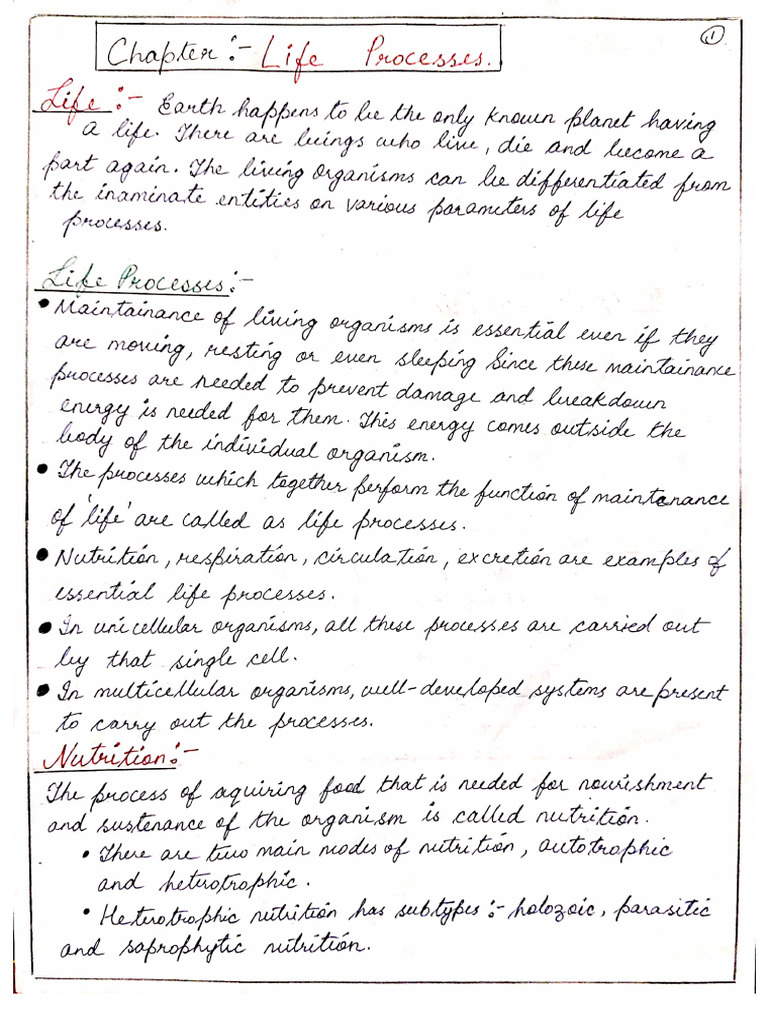 1
Chapter :- Life Processes.
Life :- Earth happens to be the only known planet having
a life. There are beings who live, die and become a
part again. The living organisms can be differentiated from
the inaminate entities on various parameters of life
processes.
Life Processes :-
• Maintainance of living organisms is essential even if they
are moving, resting or even sleeping Since these maintainance
processes are needed to prevent damage and breakdown
energy is needed for them. This energy comes outside the
body of the individual organism.
• The processes which together perform the function of maintenance
of 'life' are called as life processes.
• Nutrition, respiration, circulation, excretion are examples of
essential life processes.
• In unicellular organisms, all these processes are carried out
by that single cell.
• In multicellular organisms, well-developed systems are present
to carry out the processes.
Nutrition :-
The process of aquiring food that is needed for nourishment
and sustenance of the organism is called nutrition.
• There are two main modes of nutrition, autotrophic
and heterotrophic.
• Heterotrophic nutrition has subtypes :- holozoic, parasitic
and saprophytic nutrition.